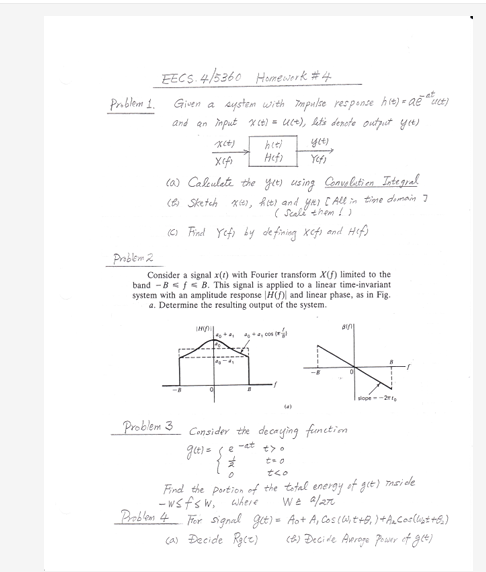 EECS. 4/5360 Homework #4
Problem 1. Given a system with impulse response h(t) = ae^-at u(t)
and an input x(t) = u(t), let's denote output y(t)
x(t) h(t) y(t)
X(f) H(f) Y(f)
(a) Calculate the y(t) using Convolution Integral
(b) Sketch x(t), h(t) and y(t) [All in time domain]
(Scale them!)
(c) Find Y(f) by defining X(f) and H(f)
Problem 2
Consider a signal x(t) with Fourier transform X(f) limited to the
band −B ≤ f ≤ B. This signal is applied to a linear time-invariant
system with an amplitude response |H(f)| and linear phase, as in Fig.
a. Determine the resulting output of the system.
|H(f)| θ(f)
a₀ + a₁ a₀ + a₁ cos (π f/B)
a₀
a₀ − a₁
B
−B 0 B f
−B 0 f
slope = −2πt₀
(a)
Problem 3 Consider the decaying function
g(t) = { e^-at t>0
1/2 t=0
0 t<0
Find the portion of the total energy of g(t) inside
−W≤f≤W, where W = a/2π
Problem 4 For signal g(t) = A₀ + A₁ Cos(ω₁t+θ₁) + A₂ Cos(ω₂t+θ₂)
(a) Decide Rg(τ) (b) Decide Average Power of g(t)